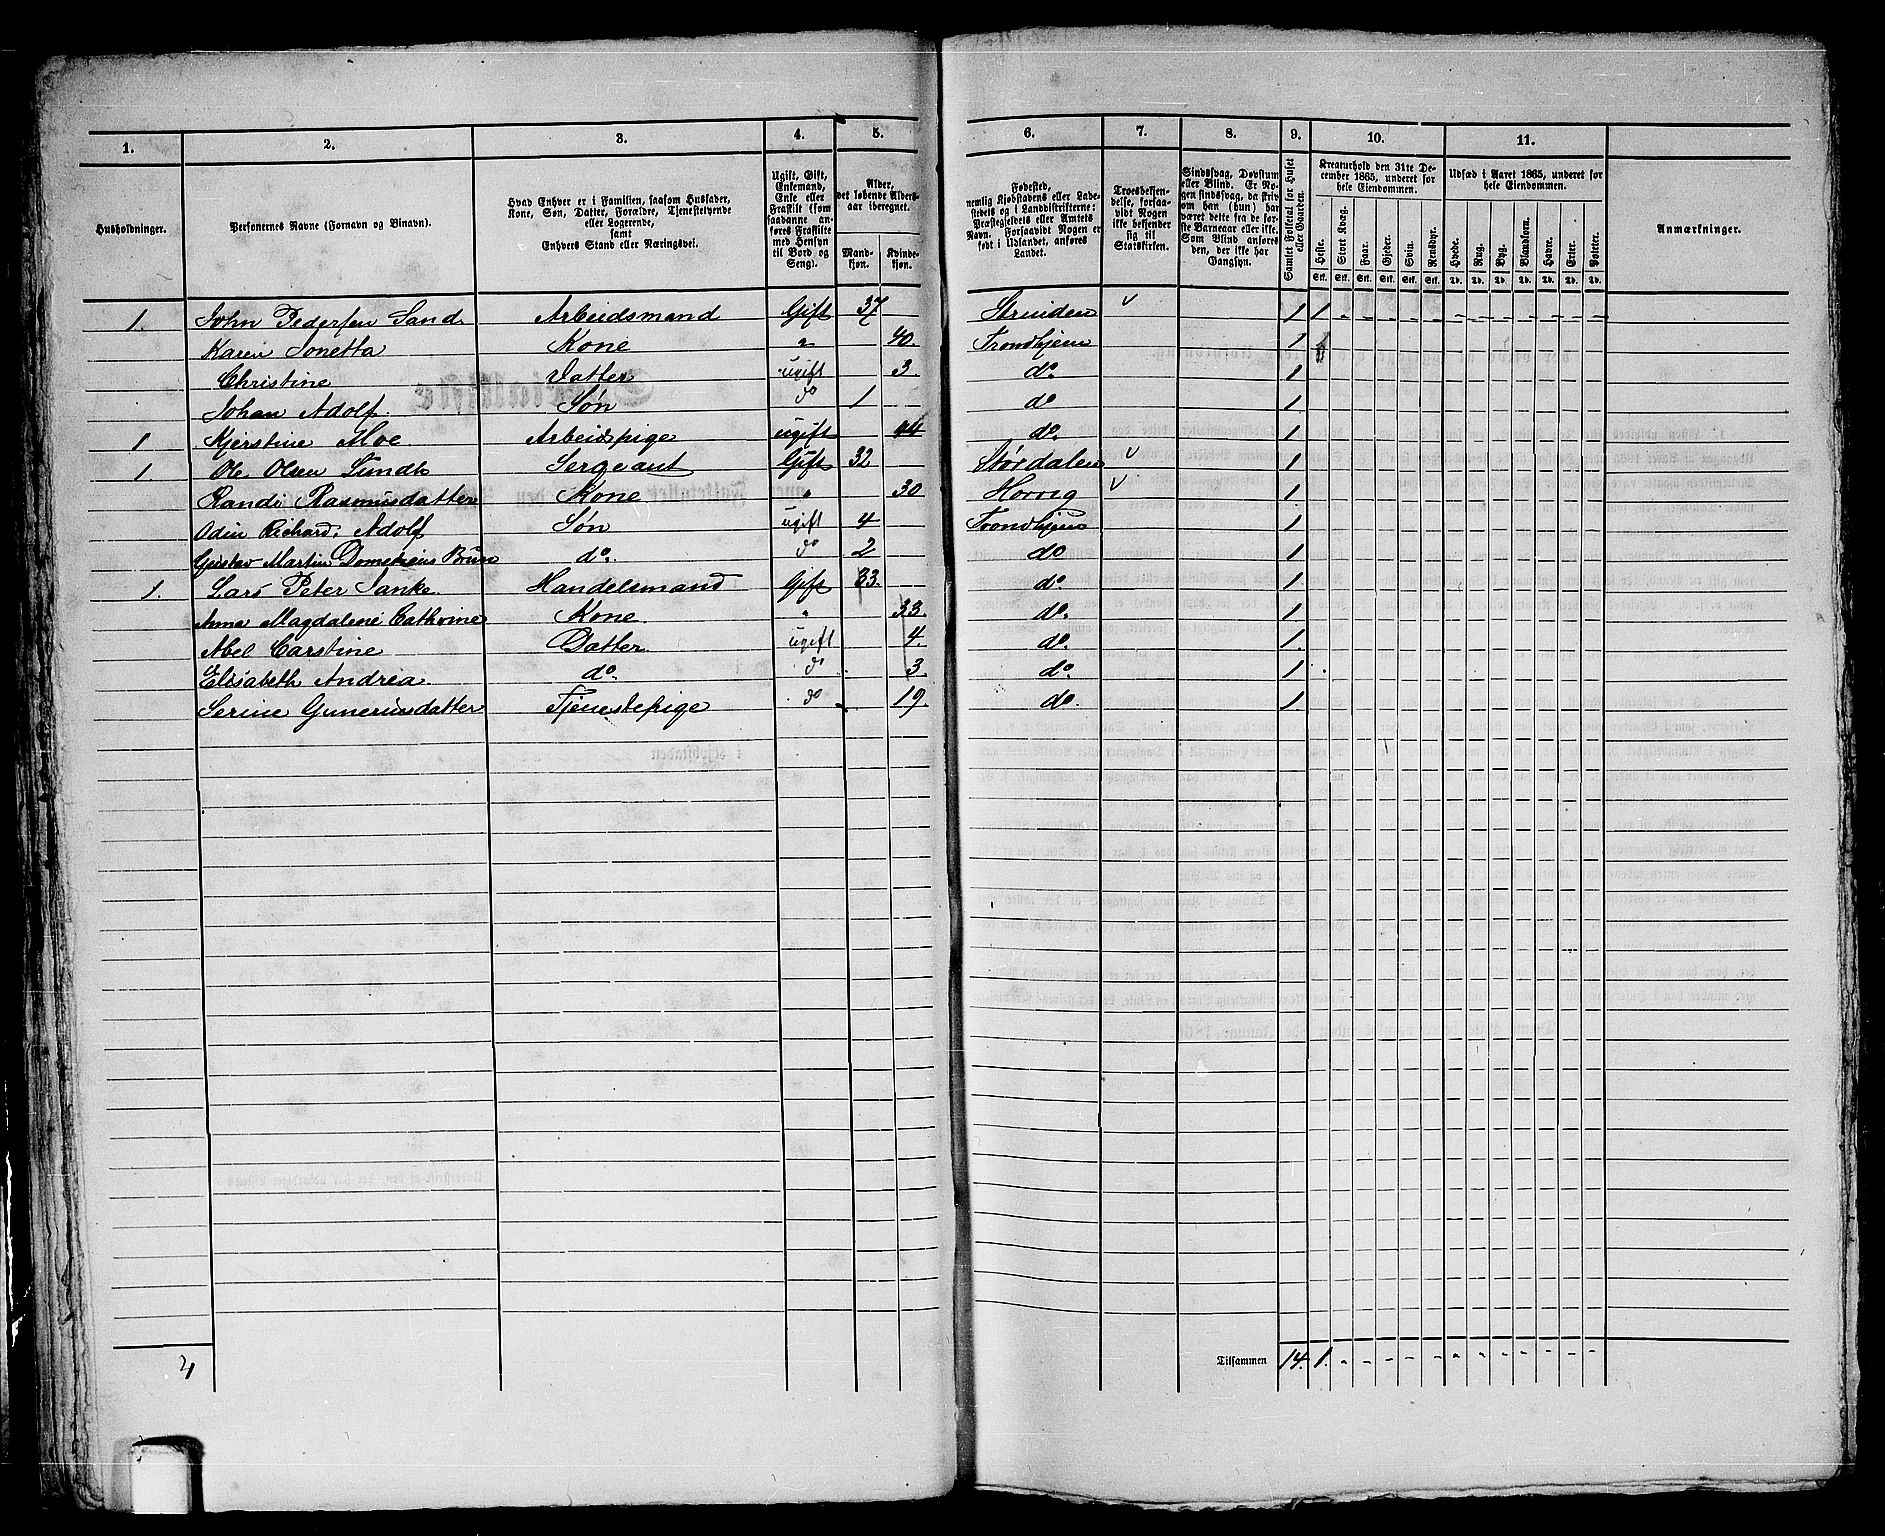 1. 2. 3. 4. 5. 6. 7. 8. 9. 10. 11.
Husholdninger.
Personernes Navne (Fornavn og Tilnavn).
Hvad Enhver er i Familien, saasom Husfader, Kone, Søn, Datter, Forældre, Tjenestetyende eller Logerende, samt Enhvers Stand eller Næringsvei.
Ugift, Gift, Enkemand, Enke eller Fraskilt (som saadanne anføres Fraskilte med Hensyn til Bord og Seng).
Alder, det løbende Aldersaar iberegnet.
Mandkjøn. Kvindekjøn.
Fødested, nemlig Kjøbstadens eller Ladestedets og i Landdistrikterne: Præstegjeldets eller Amtets Navn. Forsaavidt Nogen er født i Udlandet, anføres Landet.
Troesbekjendelse, forsaavidt Nogen ikke bekjender sig til Statskirken.
Sindssvag, Døvstum eller Blind. Er Nogen sindssvag, da skrives om han (hun) har været dette fra de første Barneaar eller ikke. Som Blind anføres den, der ikke har Gangsyn.
Samlet Folketal for Huset eller Gaarden.
Kreaturhold den 31te December 1865, underet for hele Eiendommen.
Heste. Stort Kvæg. Faar. Gjeder. Svin. Rensdyr.
Udsæd i Aaret 1865, underet for hele Eiendommen.
Hvede. Rug. Byg. Blandkorn. Havre. Erter. Poteter.
Anmærkninger.
1. John Pedersen Sand Arbeidsmand Gift 37 Strinden 1 1
Karen Jonetta Kone " 40. Trondhjem 1
Christine Datter ugift 3. do 1
Johan Adolf Søn do 1 do 1
1 Kjerstine Moe Arbeidspige ugift 44 do 1
1 Ole Olsen Sundt Sergeant Gift 32 Størdalen 1
Randi Rasmusdatter Kone " 30 1
Odin Richard, Adolf Søn ugift 4 Trondhjem 1
Gustav Martin Brun do. do 2 do 1
1. Lars Peter Janke Handelsmand Gift 33. do. 1
Anna Magdalene Cathrine Kone " 33. do. 1
Abel Carstine Datter ugift 4. do. 1.
Elisabeth Andrea do do 3. do. 1.
Serine Guneriusdatter Tjenestepige do 19. do. 1.
4 Tilsammen 14. 1.